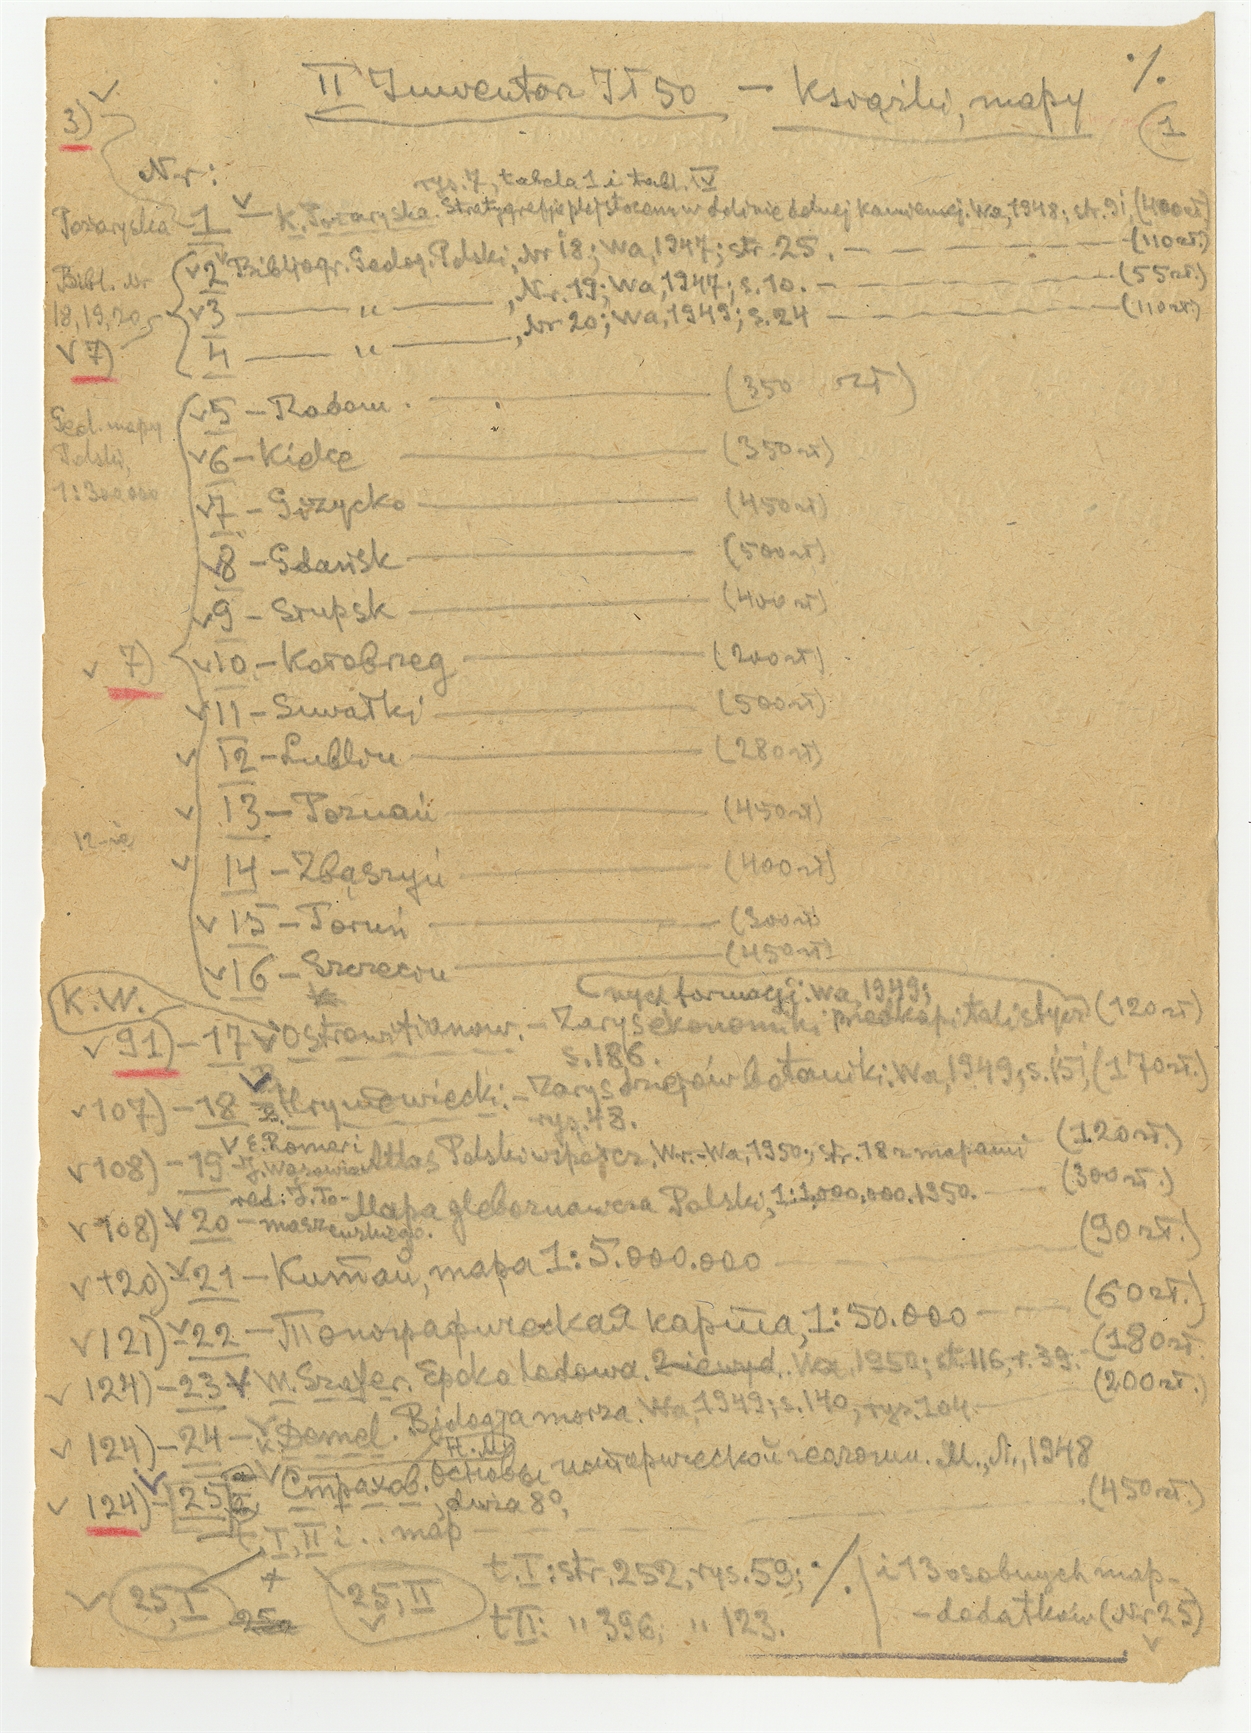 II Inwentarz IT 50 — Książki, mapy
·/.
(1
3)
Nr:
rys. 7, tabela 1 i tabl. IV
Pożaryska – 1 – K. Pożaryska. Stratygrafia plejstocenu w dolinie dolnej Kamiennej. Wa, 1948; str. 91, (400 zł)
Bibl. Nr 18, 19, 20,
2 Bibliogr. Geolog. Polski, Nr 18; Wa, 1947; str. 25. — (110 zł.)
3 — " — , Nr. 19; Wa, 1947; s. 10. — (55 zł.)
4 — " — , Nr 20; Wa, 1949; s. 24 — (110 zł.)
v 7)
Geol. mapy Polski, 1:300000
v 5 – Radom. — (350 zł)
v 6 – Kielce — (350 zł)
v 7 – Giżycko — (450 zł)
v 8 – Gdańsk — (500 zł)
v 9 – Słupsk — (400 zł)
v 7)
v 10 – Kołobrzeg — (200 zł)
v 11 – Suwałki — (500 zł)
v 12 – Lublin — (280 zł)
v 13 – Poznań — (450 zł)
12-ie
v 14 – Zbąszyń — (400 zł)
v 15 – Toruń — (300 zł)
v 16 – Szczecin — (450 zł)
K.W.
nych formacji. Wa, 1949;
v 91) – 17 v Ostrowitianow. – Zarys ekonomiki przedkapitalistycz (120 zł)
s. 186.
v 107) – 18 Hryniewiecki. – Zarys dziejów botaniki. Wa, 1949; s. 151, (170 zł.)
rys. 48.
v 108) – 19 – v E. Romer i J. Wąsowicz Atlas Polski współcz. Wr.-Wa, 1950; str. 18 z mapami (120 zł.)
v 108) v 20 – red: J. Tomaszewskiego. Mapa gleboznawcza Polski, 1:1,000,000. 1950. — (300 zł.)
v 120) v 21 – Китай, mapa 1:5.000.000 (90 zł.)
v 121) v 22 – Топографическая карта, 1:50.000 — (60 zł.)
v 124) – 23 v W. Szafer. Epoka lodowa. 2-ie wyd. Wa, 1950; st. 116, r. 39. – (180 zł.
v 124) – 24 – v K. Demel. Biologja morza. Wa, 1949; s. 140, rys. 104. — (200 zł.)
v 124) – 25 v Страхов. Н.М. Основы исторической геологии. М., Л., 1948
duża 8°, (450 zł.)
t. I, II i .. map
v 25, I
25, II v
t. I: str. 252, rys. 59; ·/.
t II: " 396; " 123.
i 13 osobnych map-
– dodatków (Nr 25)
v